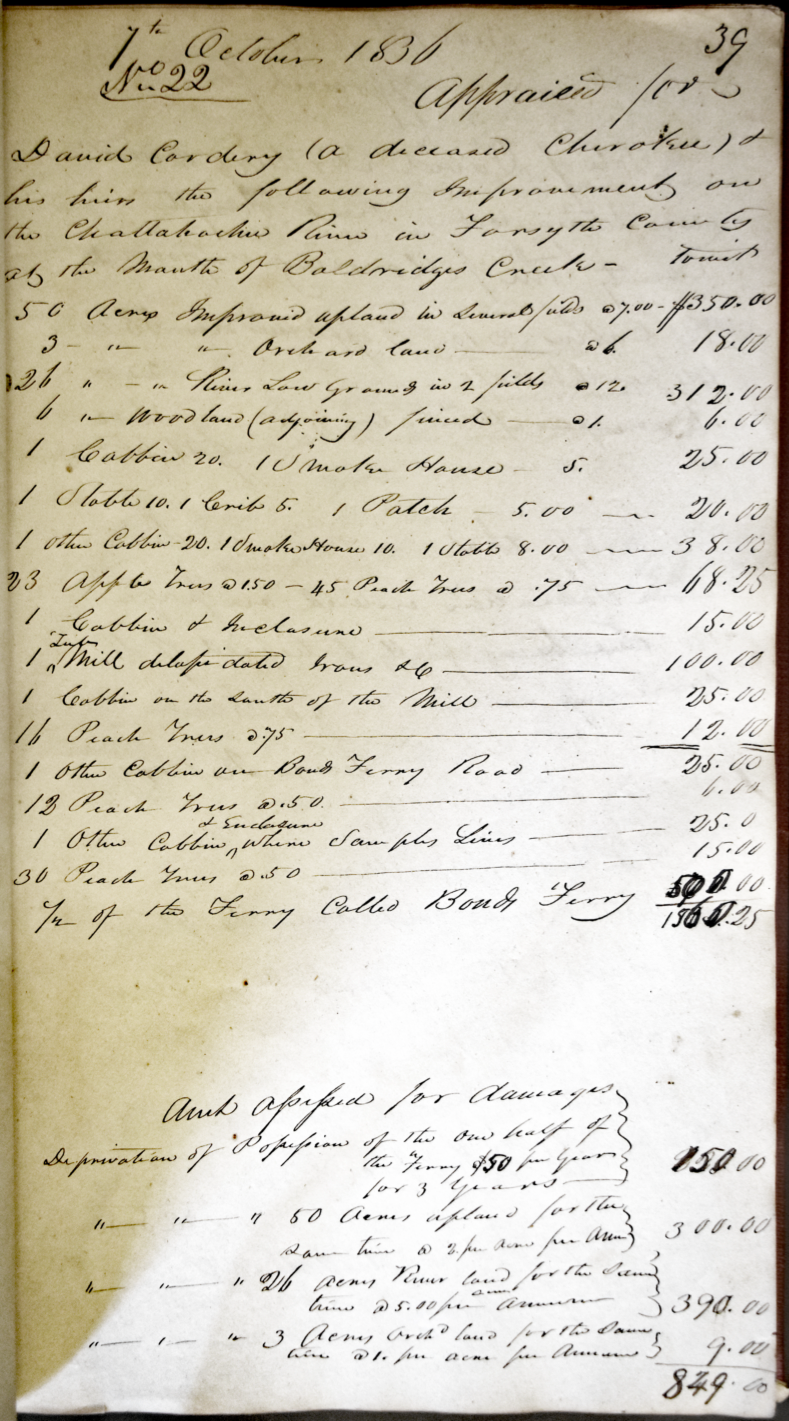 7th October 1836 39
No 22
Appraised for
David Cordery (a deceased Cherokee) &
his heirs the following Improvements on
the Chattahochie River in Forsyth County
at the Mouth of Baldridges Creek - towit
50 Acres Improved upland in Several fields @7.00 - $350.00
3 - " " Orchard land @6. 18.00
26 " - " River Low Ground in 2 fields @12. 312.00
6 " woodland (adjoining) finced @1. 6.00
1 Cabbin 20. 1 Smoke House - 5. 25.00
1 Stable 10. 1 Crib 5. 1 Patch - 5.00 20.00
1 other Cabbin - 20. 1 Smoke House 10. 1 Stable 8.00 38.00
23 Apple Trees @1.50 - 45 Peach Trees @ .75 68.25
1 Cabbin & Inclosure 15.00
1 Tub Mill delapidated Irons &C 100.00
1 Cabbin on the South of the Mill 25.00
16 Peach Trees @.75 12.00
1 Other Cabbin on Bonds Ferry Road 25.00
12 Peach Trees @.50 6.00
1 Other Cabbin & Enclosure where Samples Lives 25.0
30 Peach Trees @.50 15.00
1/2 of the Ferry Called Bonds Ferry 500.00
1560.25
Amt assessed for damages
Deprivation of Possession of the one half of
the Ferry $50 per Year
for 3 Years 150 00
" " " 50 Acres upland for the
same time @ 2. per acre per Ann 300.00
" " " 26 Acres River land for the Same
time @ 5.00 per annum 390.00
" " " 3 Acres Orchd land for the Same
time @1. per acre per Annum 9.00
849.00